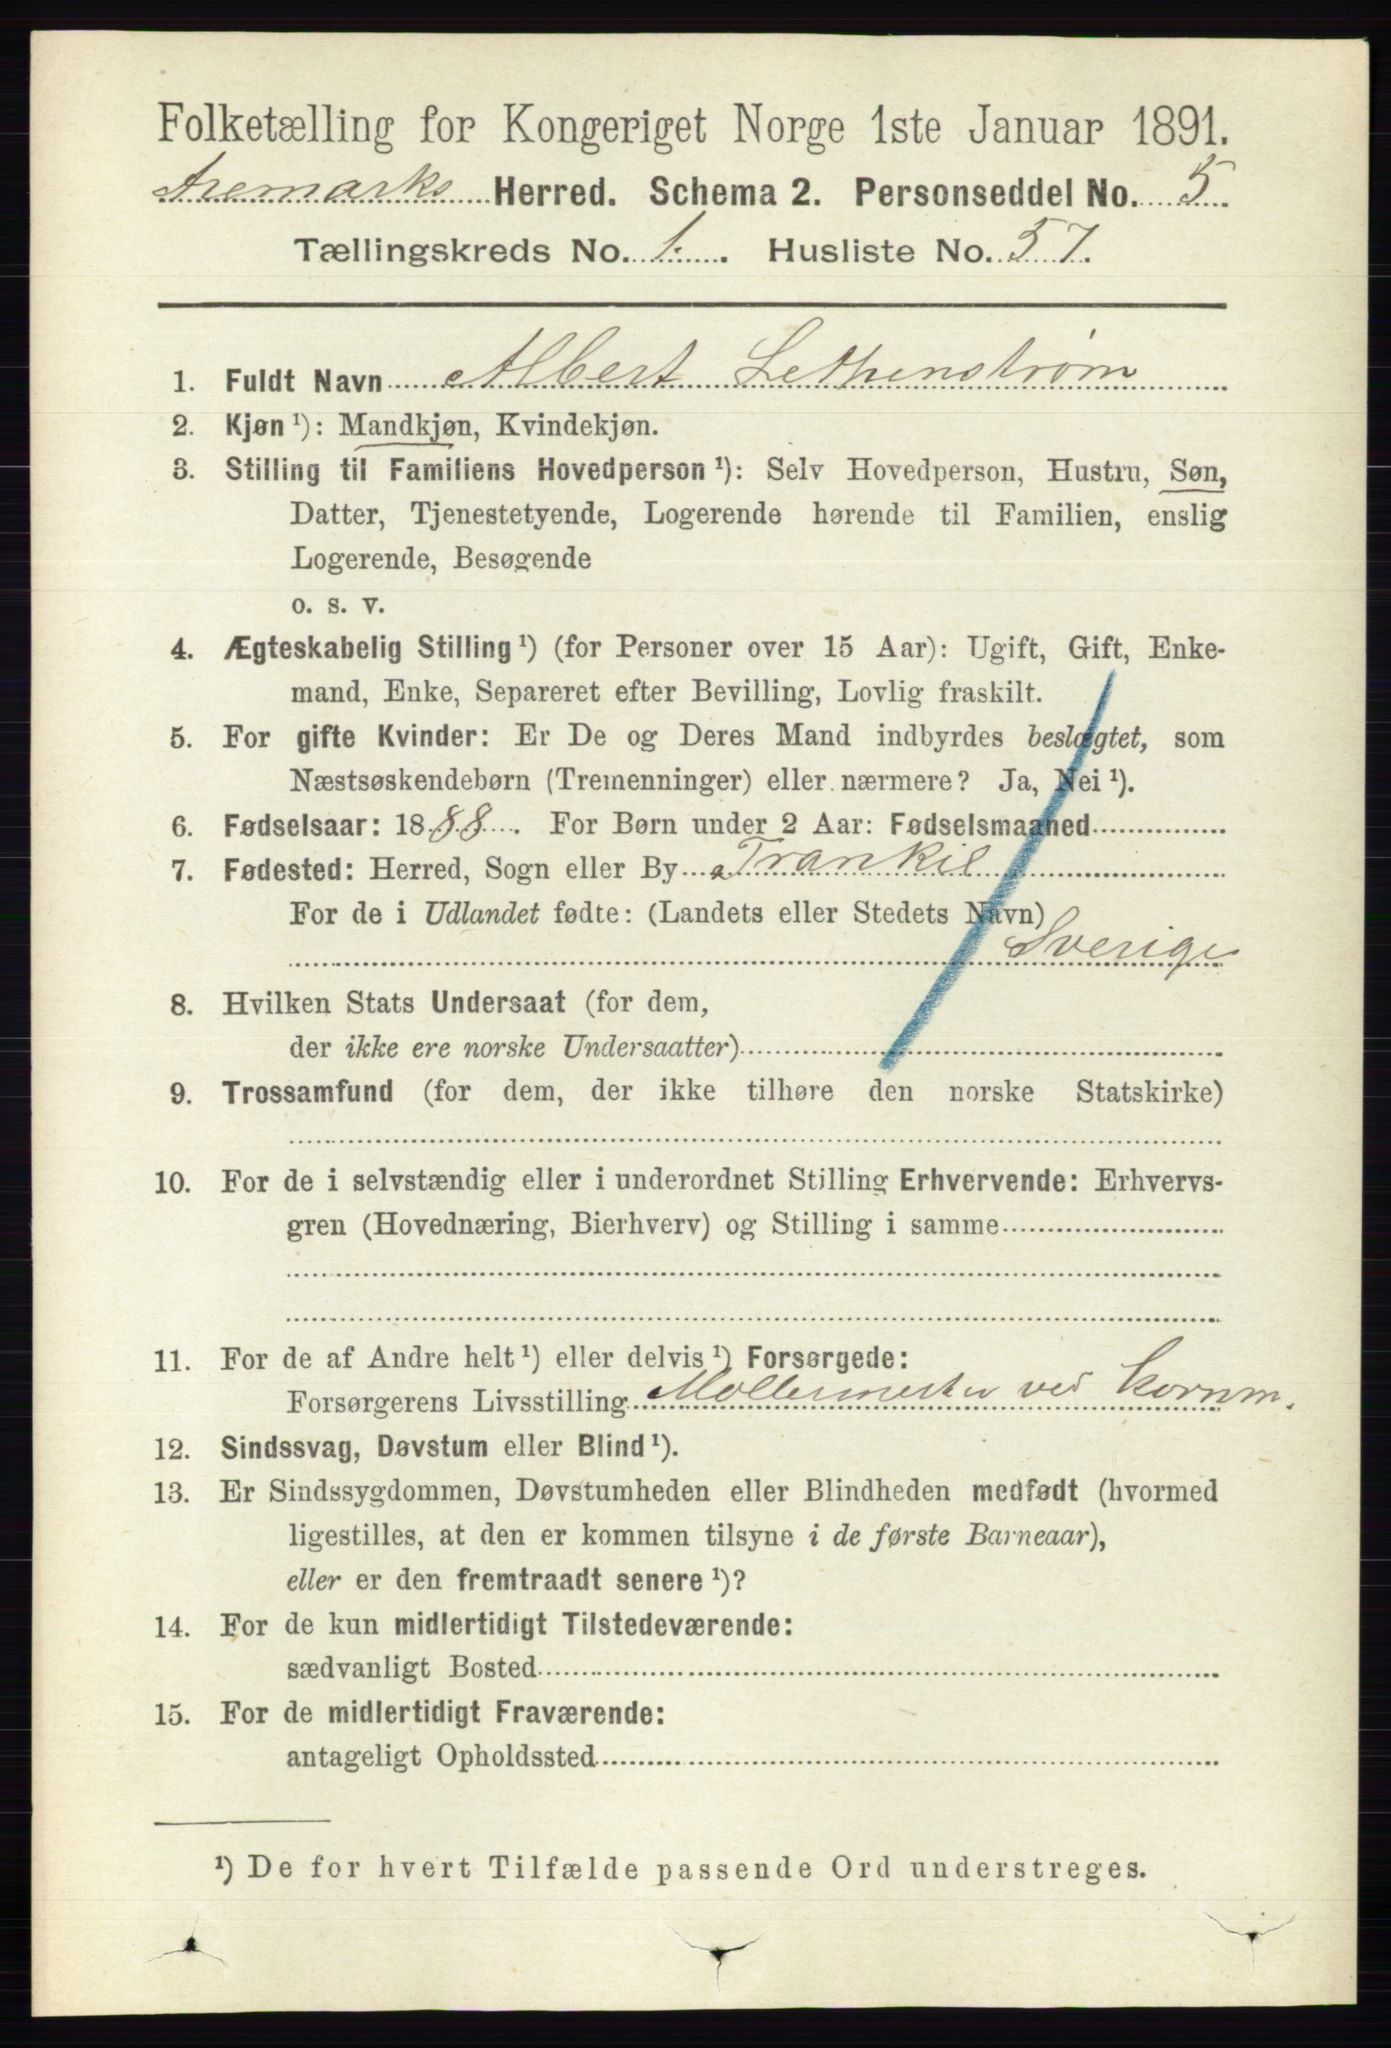 Folketælling for Kongeriget Norge 1ste Januar 1891.
Aremarks Herred. Schema 2. Personseddel No. 5
Tællingskreds No. 1. Husliste No. 57.
1. Fuldt Navn Albert Lethenstrøm
2. Kjøn ¹): Mandkjøn, Kvindekjøn.
3. Stilling til Familiens Hovedperson ¹): Selv Hovedperson, Hustru, Søn,
Datter, Tjenestetyende, Logerende hørende til Familien, enslig
Logerende, Besøgende
o. s. v.
4. Ægteskabelig Stilling ¹) (for Personer over 15 Aar): Ugift, Gift, Enke-
mand, Enke, Separeret efter Bevilling, Lovlig fraskilt.
5. For gifte Kvinder: Er De og Deres Mand indbyrdes beslægtet, som
Næstsøskendebørn (Tremenninger) eller nærmere? Ja, Nei ¹).
6. Fødselsaar: 1888. For Børn under 2 Aar: Fødselsmaaned
7. Fødested: Herred, Sogn eller By Trankil
For de i Udlandet fødte: (Landets eller Stedets Navn)
Sverige
8. Hvilken Stats Undersaat (for dem,
der ikke ere norske Undersaatter)
9. Trossamfund (for dem, der ikke tilhøre den norske Statskirke)
10. For de i selvstændig eller i underordnet Stilling Erhvervende: Erhvervs-
gren (Hovednæring, Bierhverv) og Stilling i samme
11. For de af Andre helt ¹) eller delvis ¹) Forsørgede:
Forsørgerens Livsstilling Møllermester ved Kornm.
12. Sindssvag, Døvstum eller Blind ¹).
13. Er Sindssygdommen, Døvstumheden eller Blindheden medfødt (hvormed
ligestilles, at den er kommen tilsyne i de første Barneaar),
eller er den fremtraadt senere ¹)?
14. For de kun midlertidigt Tilstedeværende:
sædvanligt Bosted
15. For de midlertidigt Fraværende:
antageligt Opholdssted
¹) De for hvert Tilfælde passende Ord understreges.